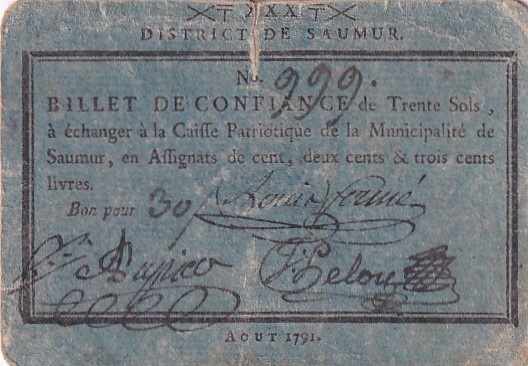 XXX
DISTRICT DE SAUMUR.
No. 999.
BILLET DE CONFIANCE de Trente Sols,
à échanger à la Caisse Patriotique de la Municipalité de
Saumur, en Assignats de cent, deux cents & trois cents
livres.
Bon pour 30 Louis
AOUT 1791.